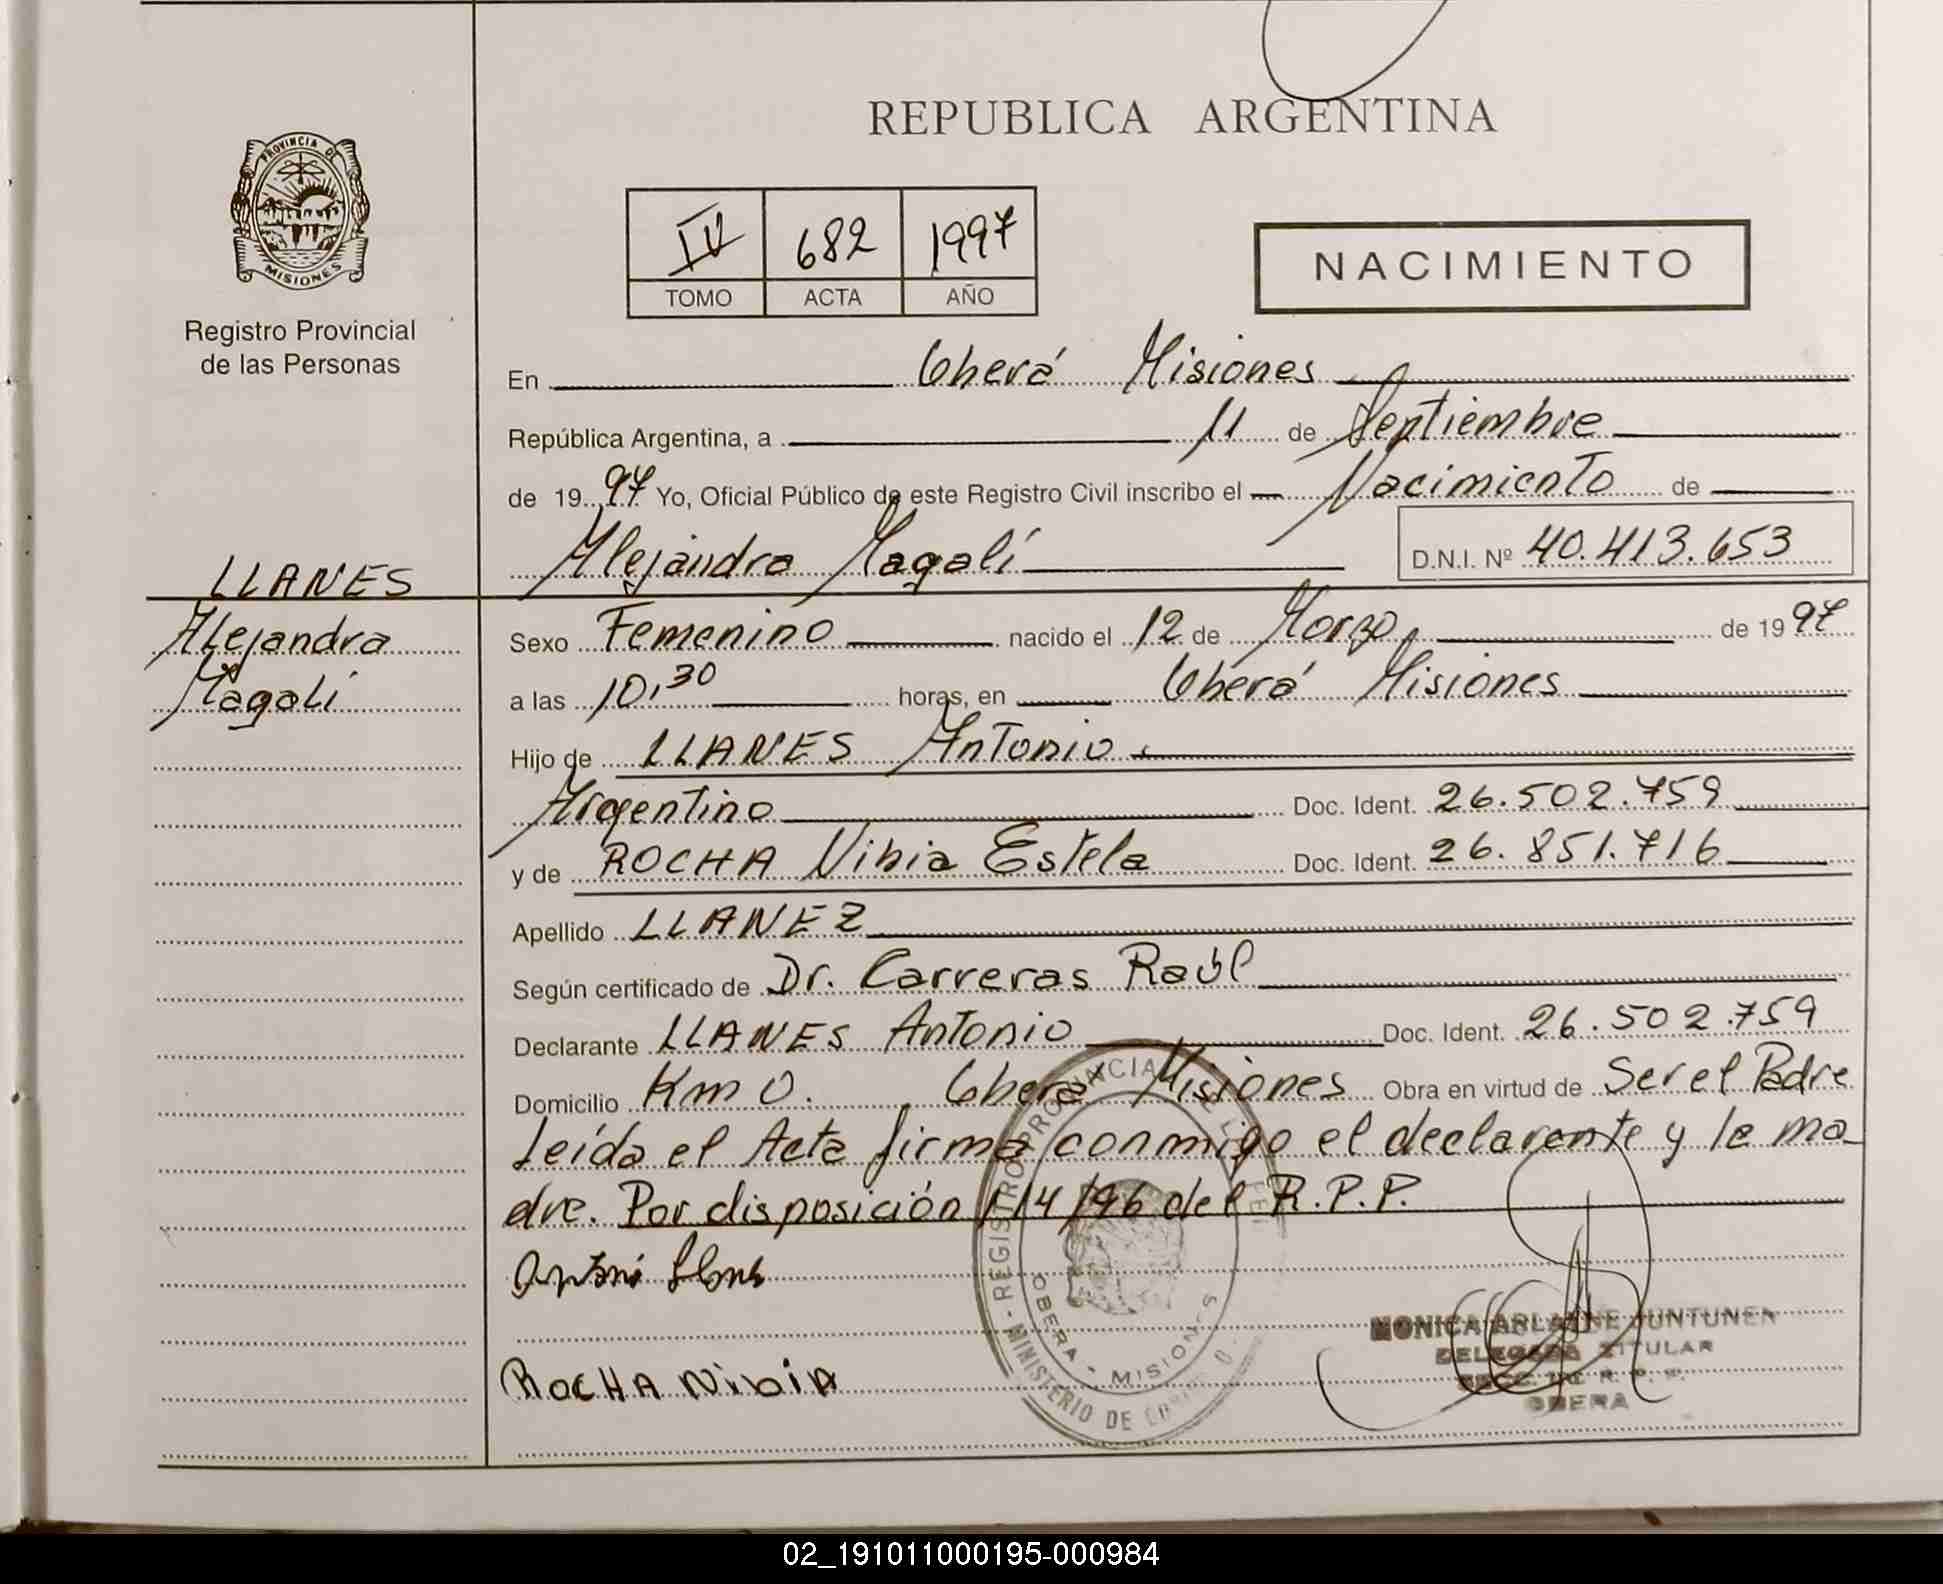 REPUBLICA ARGENTINA
PROVINCIA DE
MISIONES
Registro Provincial
de las Personas
IV 682 1997
TOMO ACTA AÑO
NACIMIENTO
En Oberá Misiones
República Argentina, a 11 de Septiembre
de 1997 Yo, Oficial Público de este Registro Civil inscribo el Nacimiento de
Alejandra Magalí D.N.I. Nº 40.413.653
LLANES
Alejandra
Magalí
Sexo Femenino nacido el 12 de Marzo de 1997
a las 10,30 horas, en Oberá Misiones
Hijo de LLANES Antonio
Argentino Doc. Ident. 26.502.759
y de ROCHA Nibia Estela Doc. Ident. 26.851.716
Apellido LLANEZ
Según certificado de Dr. Carreras Raúl
Declarante LLANES Antonio Doc. Ident. 26.502.759
Domicilio Km 0. Oberá Misiones Obra en virtud de Ser el Padre
Leída el Acta firma conmigo el declarante y la ma_
dre. Por disposición 114/96 del R.P.P.
ROCHA NibiA
REGISTRO PROVINCIAL
MINISTERIO DE
OBERA - MISIONES
MONICA ARLANNE JUNTUNEN
DELEGADA TITULAR
OBERA
02_191011000195-000984